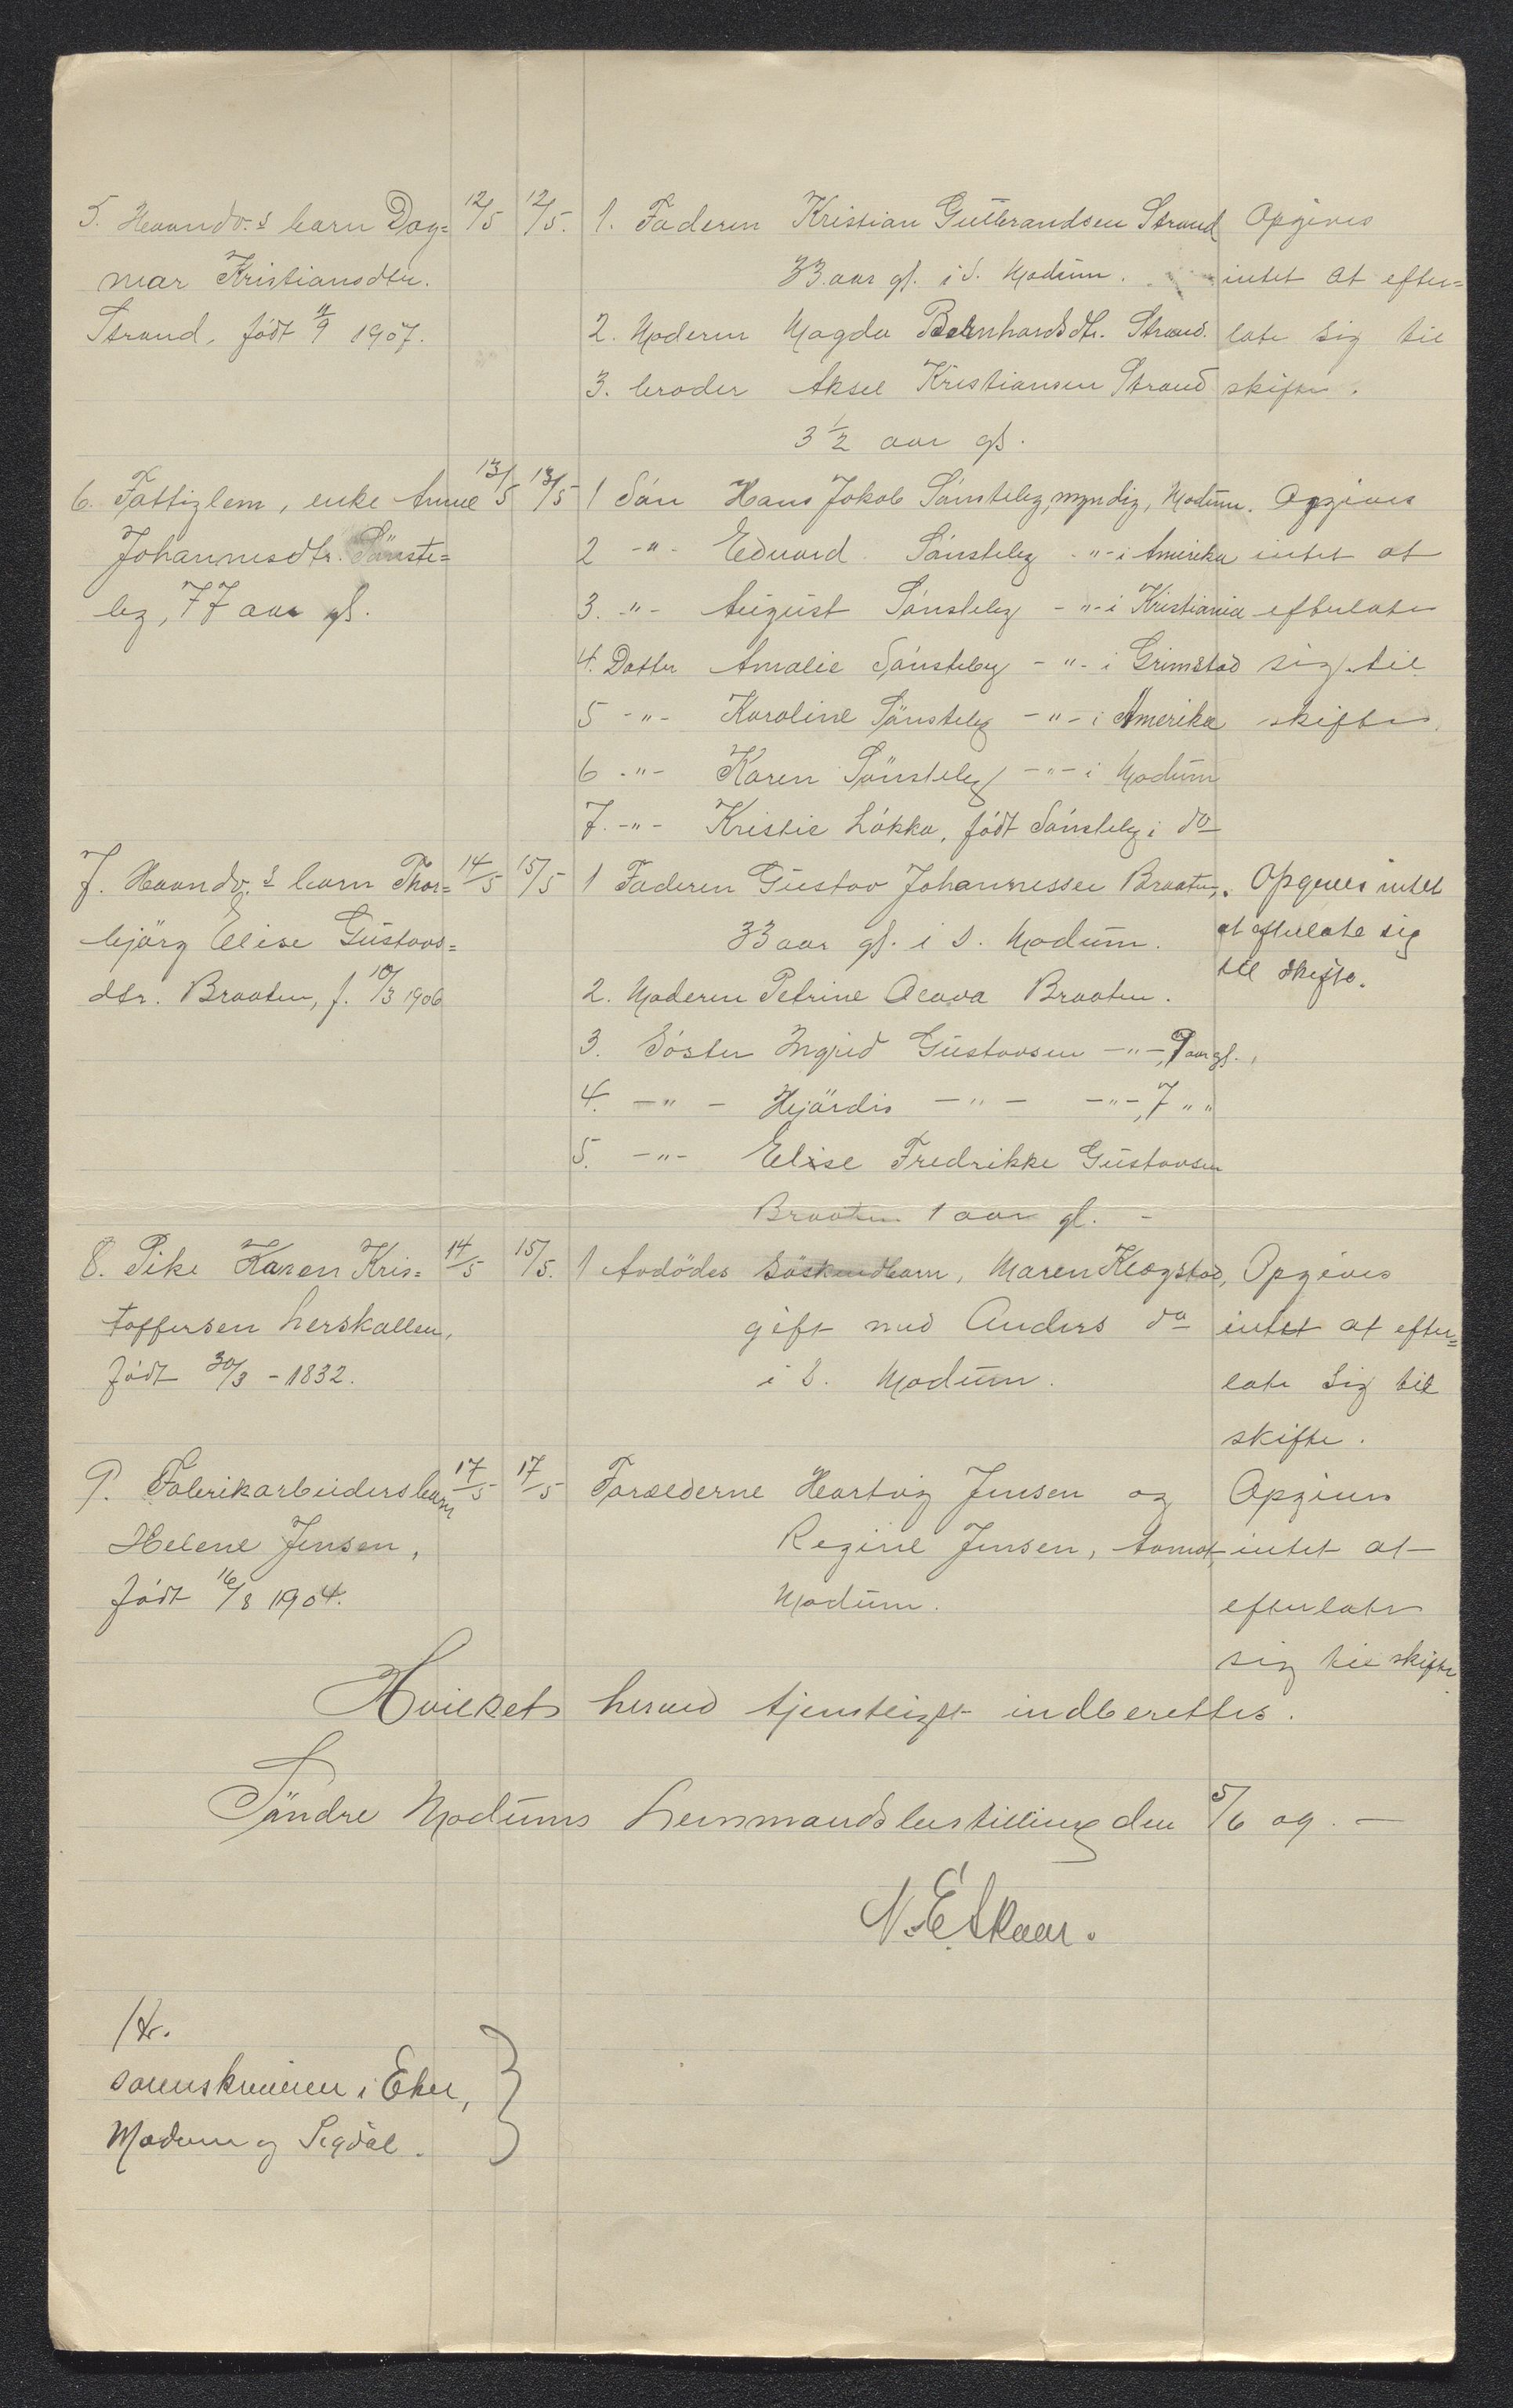 5. Haandv.s barn Dag= 12/5 12/5. 1. Faderen Kristian Gulbrandsen Strand Opgives
mar Kristiansdtr. 33 aar gl. i S. Modum. intet at efter=
Strand, født 11/9 1907. 2. Moderen Magda Bernhardsdtr. Strand. late sig til
3. broder Aksel Kristiansen Strand skifte.
3 1/2 aar gl.
6. Fattiglem, enke Anne 13/5 13/5 1 Sön Hans Jakob Sönsteby, myndig, Modum. Opgives
Johannesdtr. Sönste= 2 -"- Edvard Sönsteby -"- i Amerika intet at
by, 77 aar gl. 3. -"- August Sönsteby -"- i Kristiania efterlate
4. Datter Amalie Sönsteby -"- i Grimstad sig til
5 -"- Karoline Sönsteby -"- i Amerika skifte.
6 -"- Karen Sönsteby -"- i Modum
7. -"- Kristie Lökka, födt Sönsteby i do
7. Haandv.s barn Thor= 14/5 15/5 1 Faderen Gustav Johannessen Braaten, Opgives intet
björg Elise Gustavs= 33 aar gl. i S. Modum. at efterlate sig
dtr. Braaten, f. 10/3 1906 2. Moderen Petrine Olava Braaten. til skifte.
3. Söster Ingrid Gustavsen -"-, 9 aar gl.
4. -"- Hjördis -"- -"-, 7 " "
5. -"- Elise Fredrikke Gustavsen
Braaten 1 aar gl. -
8. Pike Karen Kris= 14/5 15/5. 1 Avdödes Söskendbarn, Maren Klogstad, Opgives
toffersen Lerskallen, gift med Anders do intet at efter=
födt 30/3 - 1832. i S. Modum. late sig til
skifte.
9. Fabrikarbeidersbarn 17/5 17/5 Forælderne Hartvig Jensen og Opgives
Helene Jensen, Regine Jensen, Aamot, intet at
født 16/8 1904. Modum. efterlate
sig til skifte.
Hvilket herved tjenstligst indberettes.
Söndre Modums Lensmandsbestilling den 5/6 09. —
N. E. Skaar.
Hr.
sorenskriveren i Eker,
Modum og Sigdal.